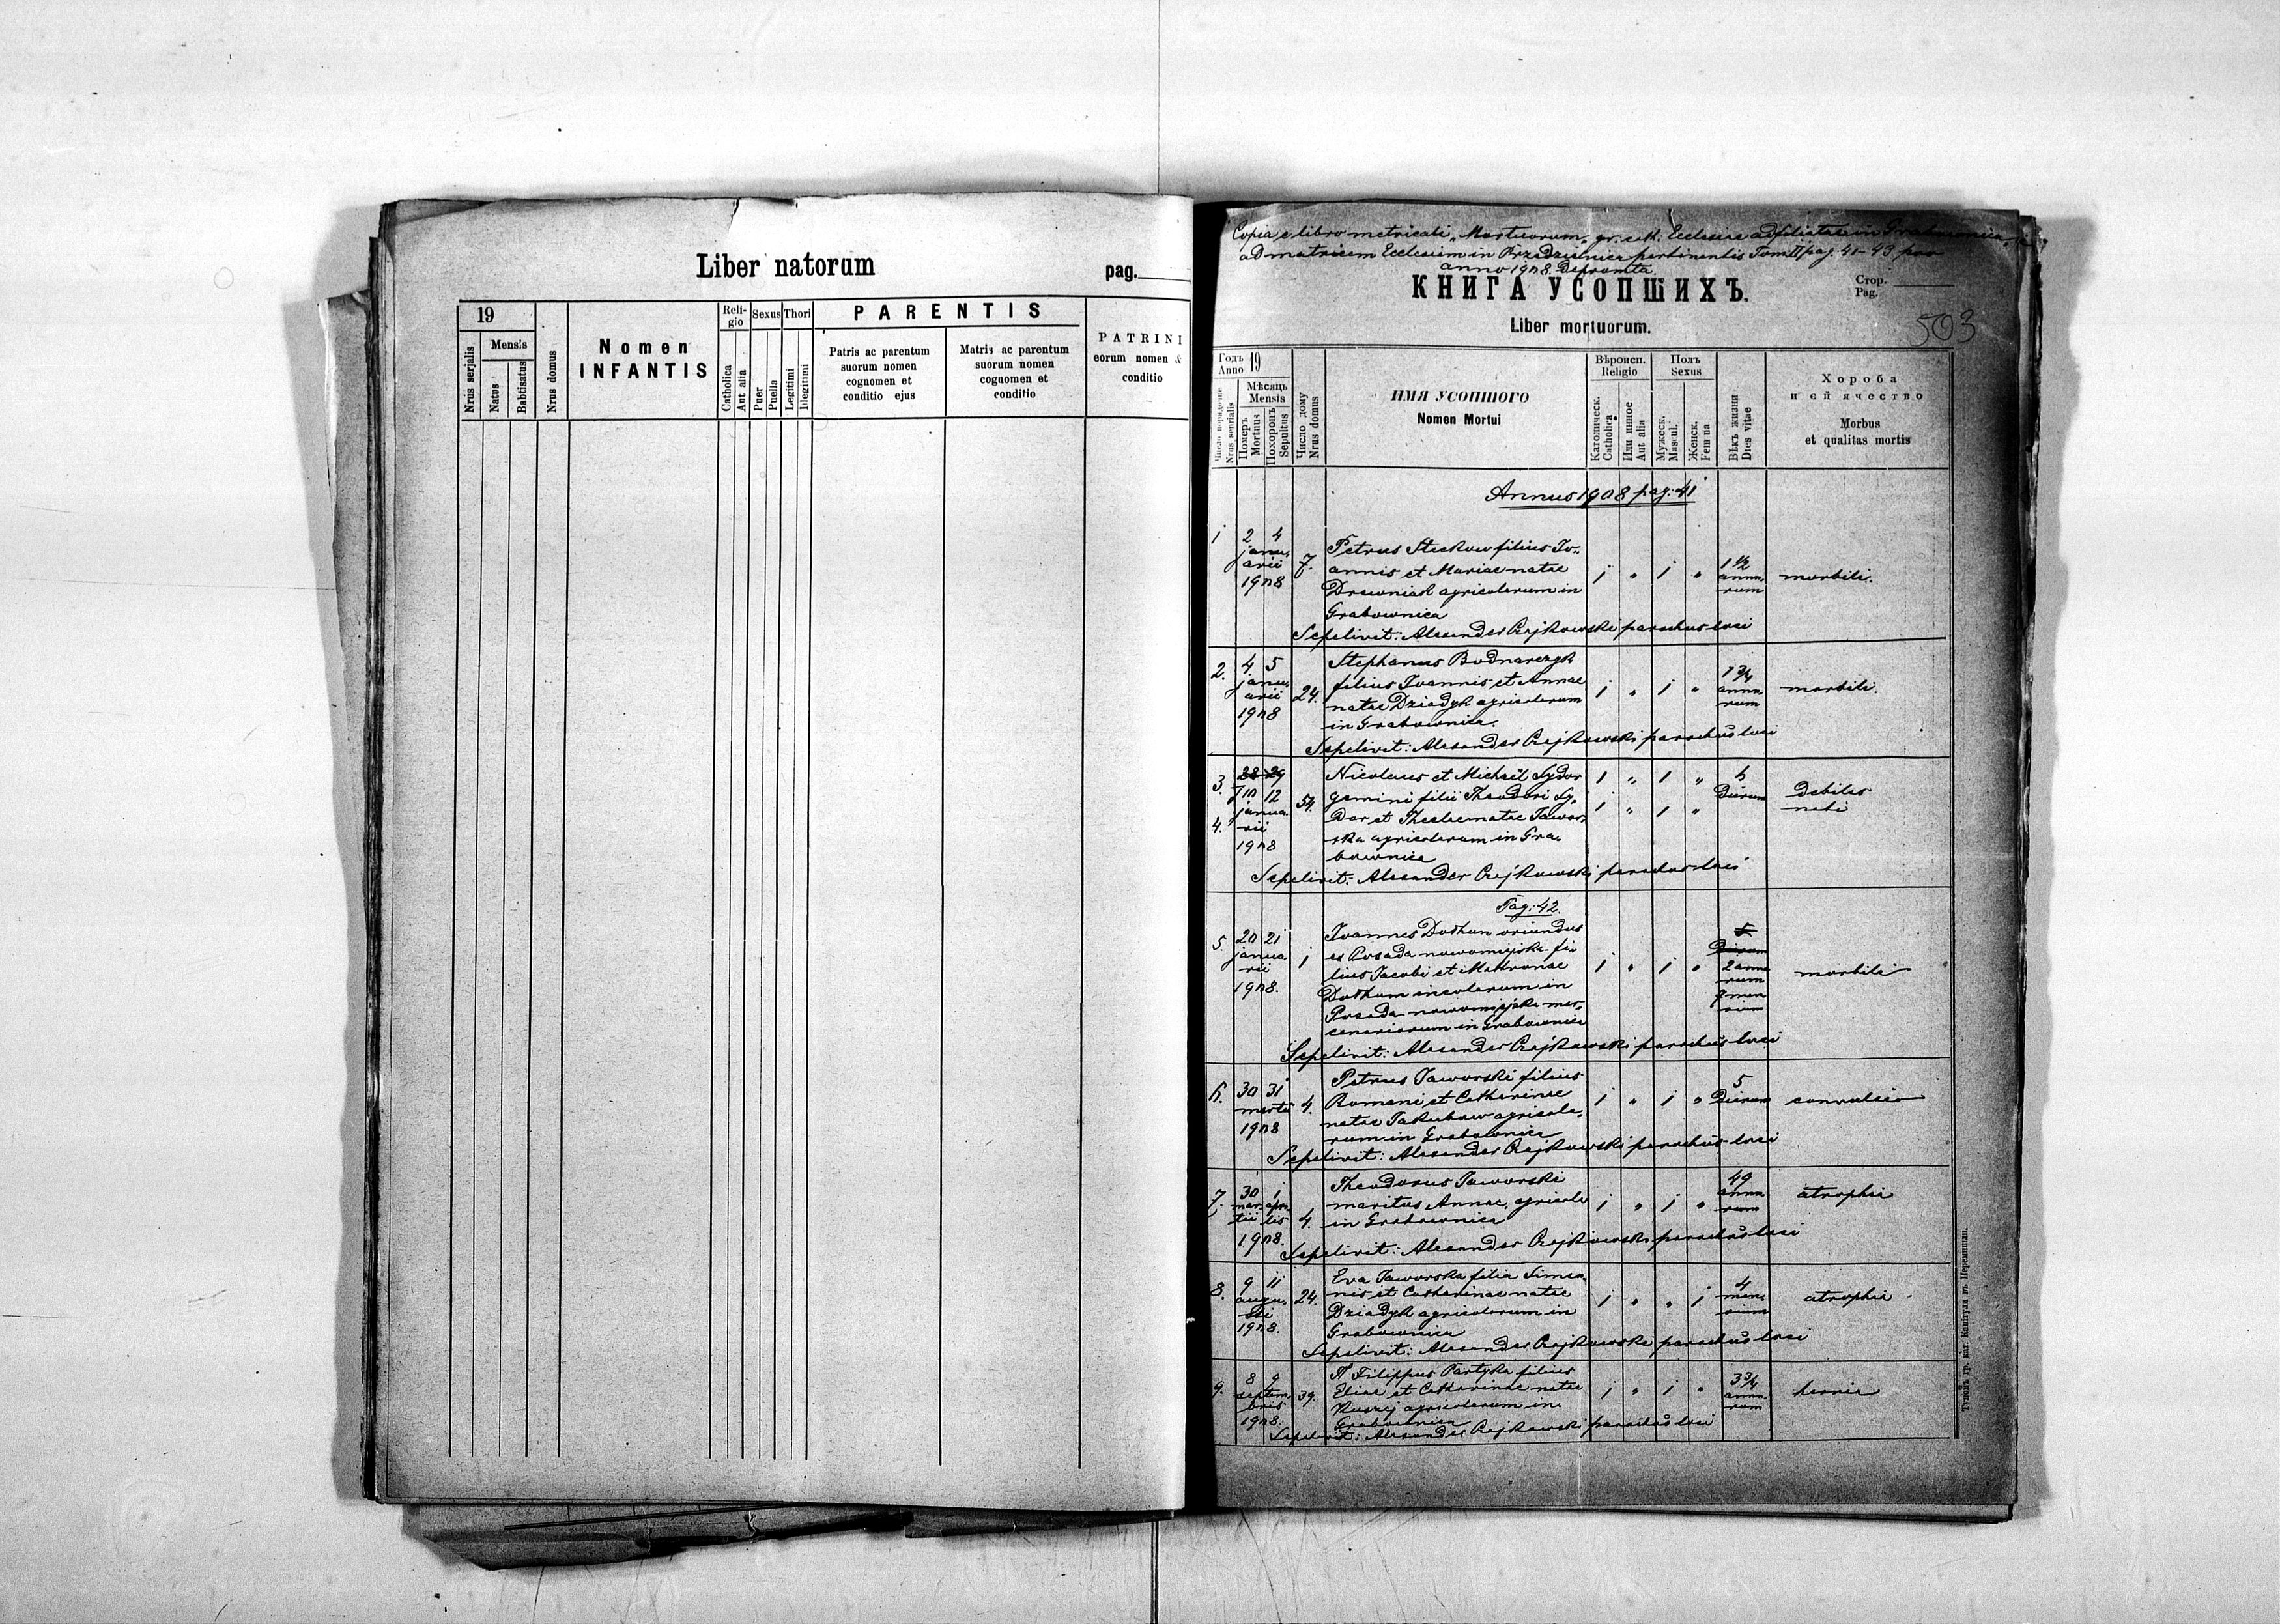 Liber natorum
pag.
19
Mensis
Nrus serjalis
Natus
Babtisatus
Nrus domus
Nomen
INFANTIS
Reli-
gio
Sexus
Thori
Catholica
Aut alia
Puer
Puella
Legitimi
Illegitimi
PARENTIS
Patris ac parentum
suorum nomen
cognomen et
conditio ejus
Matris ac parentum
suorum nomen
cognomen et
conditio
PATRINI
eorum nomen &
conditio
Copia e libro metricali "Mortuorum" gr. cath. Ecclesiae adfiliatae in Grabownica,
ad matricem Ecclesiam in Przedzielnica pertinentis Tom II pag. 41-43 pro
anno 1908. Deprompta.
КНИГА УСОПШИХЪ.
Стор.
Pag.
Liber mortuorum.
503
Годъ
Anno 19
Мѣсяць
Mensis
Число порядочне
Nrus serialis
Померъ
Mortuus
Похоронъ
Sepultus
Число дому
Nrus domus
ИМЯ УСОПШОГО
Nomen Mortui
Вѣроисп.
Religio
Полъ
Sexus
Католическ.
Catholica
Или инное
Aut alia
Мужеск.
Mascul.
Женск.
Femina
Вѣкъ жизни
Dies vitae
Хороба
и єй ячество
Morbus
et qualitas mortis
Annus 1908 pag: 41
1 2 4 januarii 1908 7. Petrus Steckow filius Jo-
annis et Mariae natae 1 " 1 " 1 1/2 annorum morbili.
Drewniak agricolarum in
Grabownica
Sepelivit: Alexander Czajkowski parochus loci
2. 4 5 januarii 1908 24. Stephanus Bodnarczyk
filius Joannis et Annae 1 " 1 " 1 3/4 annorum morbili.
natae Dziadyk agricolarum
in Grabownica.
Sepelivit: Alexander Czajkowski parochus loci
3. 4. 28 29 10 12 januarii 1908 54. Nicolaus et Michaël Sydor 1 " 1 " dierum debiles
gemini filii Theodori Sy- 1 " 1 " nati
dor et Theclae natae Jawor-
ska agricolarum in Gra-
bownica
Sepelivit: Alexander Czajkowski parochus loci
Pag: 42.
5. 20 21 januarii 1908. 1 Joannes Dothun oriundus
ex Posada nowomiejska fi-
lius Jacobi et Makronae 1 " 1 " 2 annorum mensium morbili
Dothum incolarum in
Posada nowomiejska mer-
cenariorum in Grabownica
Sepelivit: Alexander Czajkowski parochus loci
6. 30 31 martii 1908 4. Petrus Jaworski filius
Romani et Catharinae 1 " 1 " 5 dierum convulsio
natae Jakubow agricola-
rum in Grabownica
Sepelivit: Alexander Czajkowski parochus loci
7. 30 martii 1 aprilis 1908. 4. Theodorus Jaworski
maritus Annae, agricola 1 " 1 " 49 annorum atrophia
in Grabownica
Sepelivit: Alexander Czajkowski parochus loci
8. 9 11 augusti 1908. 24. Eva Jaworska filia Simeo-
nis et Catharinae natae 1 " " 1 4 mensium atrophia
Dziadyk agricolarum in
Grabownica
Sepelivit: Alexander Czajkowski parochus loci
9. 8 9 septembris 1908. 39. Filippus Partyka filius
Eliae et Catharinae natae 1 " 1 " 3 3/4 annorum hernia
agricolarum in
Grabownica
Sepelivit: Alexander Czajkowski parochus loci
Типомъ гр. кат. Капитулы въ Перемишли.